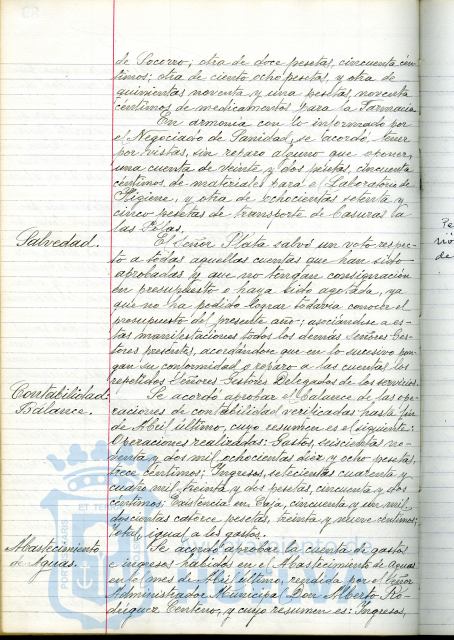 de Socorro; otra de doce pesetas, cincuenta cén-
timos; otra de ciento ocho pesetas, y otra de
quinientas noventa y una pesetas, noventa
céntimos de medicamentos para la Farmacia
En armonia con lo informado por
el Negociado de Sanidad, se acordó tener
por vistas, sin reparo alguno que oponer,
una cuenta de veinte y dos pesetas, cincuenta
céntimos, de materiales para el Laboratorio de
Higiene, y otra de ochocientas setenta y
cinco pesetas de transporte de basuras la
las Pilas.
Salvedad.
El Señor Plata salvó un voto respec-
to a todas aquellas cuentas que han sido
aprobadas y que no tengan consignación
en presupuesto o haya sido agotada, ya
que no ha podido lograr todavia conocer el
presupuesto del presente año; asociándose a es-
tas manifestaciones todos los demás Señores Ges-
tores presentes, acordándose que en lo sucesivo pon-
gan su conformidad o reparo a las cuentas los
repetidos Señores Gestores Delegados de los servicios.
Contabilidad
Balance.
Se acordó aprobar el balance de las ope-
raciones de contabilidad verificadas hasta fin
de Abril último, cuyo resumen es el siguiente:
Operaciones realizadas: Gastos, seiscientas no-
venta y dos mil ochocientas diez y ocho pesetas,
trece céntimos; Ingresos, setecientas cuarenta y
cuatro mil treinta y dos pesetas, cincuenta y dos
céntimos; Existencia en Caja, cincuenta y un mil
doscientas catorce pesetas, treinta y nueve céntimos;
Total, igual a los gastos.
Abastecimiento
de Aguas.
Se acordó aprobar la cuenta de gastos
e ingresos habidos en el Abastecimiento de Aguas
en el mes de Abril último, rendida por el Señor
Administrador Municipal Don Alberto Ro-
driguez Centeno, y cuyo resumen es: Ingresos,